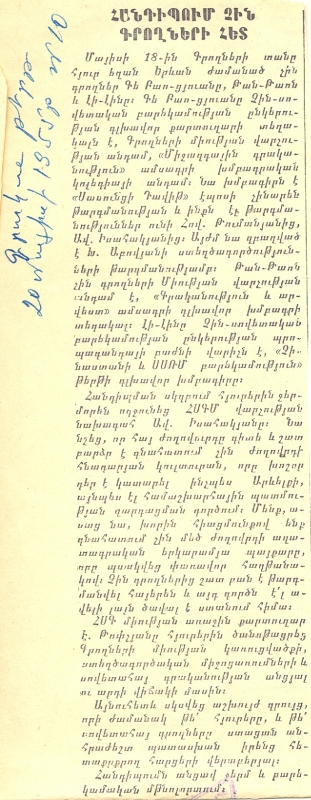 ՀԱՆԴԻՊՈՒՄ ՉԻՆ
ԳՐՈՂՆԵՐԻ ՀԵՏ
Մայիսի 18-ին Գրողների տանը
հյուր եղան Երևան ժամանած չին
գրողներ Գե Բաո-ցյուանը, Թան-Թառն
և Լի-Լինը։ Գե Բաո-ցյուանը Չին-սո-
վետական բարեկամության ընկերու-
թյան գլխավոր քարտուղարի տեղա-
կալն է, Գրողների միության վարչու-
թյան անդամ, «Միջազգային գրակա-
նություն» ամսագրի խմբագրական
կոլեգիայի անդամ։ Նա խմբագիրն է
«Սասունցի Դավիթ» էպոսի չինարեն
թարգմանության և ինքն էլ թարգմա-
նություններ ունի Հովհ. Թումանյանից,
Ավ. Իսահակյանից։ Այժմ նա զբաղված
է Խ. Աբովյանի ստեղծագործություն-
ների թարգմանությամբ։ Թան-Թառն
չին գրողների Միության վարչության
անդամ է, «Գրականություն և ար-
վեստ» ամսագրի գլխավոր խմբագրի
տեղակալ։ Լի-Լինը Չին-սովետական
բարեկամության ընկերության պրո-
պագանդայի բաժնի վարիչն է, «Չի-
նաստանի և ՍՍՌՄ բարեկամություն»
թերթի գլխավոր խմբագիրը։
Հանդիպման սկզբում հյուրերին ջեր-
մորեն ողջունեց ՀՍԳՄ վարչության
նախագահ Ավ. Իսահակյանը։ Նա
նշեց, որ հայ ժողովուրդը գիտե և շատ
բարձր է գնահատում չին ժողովրդի
հնադարյան կուլտուրան, որը խոշոր
դեր է կատարել ինչպես Արևելքի,
այնպես էլ համաշխարհային պատմու-
թյան զարգացման գործում։ Մենք, ա-
սաց նա, խորին հիացմունքով ենք
գնահատում չին մեծ ժողովրդի ազա-
տագրական երկարամյա պայքարը,
որը պսակվեց փառավոր հաղթանա-
կով։ Չին գրողներից շատ բան է թարգ-
մանվել հայերեն և այդ գործն է՛լ ա-
վելի լայն ծավալ է ստանում հիմա։
ՀՍԳ միության առաջին քարտուղար
է. Թոփչյանը հյուրերին ծանոթացրեց
Գրողների միության կառուցվածքի,
ստեղծագործական միջոցառումների և
սովետահայ գրականության անցյալ
ու արդի վիճակի մասին։
Այնուհետև սկսվեց աշխույժ զրույց,
որի ժամանակ թե՛ հյուրերը, և թե՛
սովետահայ գրողները ստացան ան-
հրաժեշտ պատասխան իրենց հե-
տաքրքրող հարցերի վերաբերյալ։
Հանդիպումն անցավ ջերմ և բարե-
կամական մթնոլորտում։